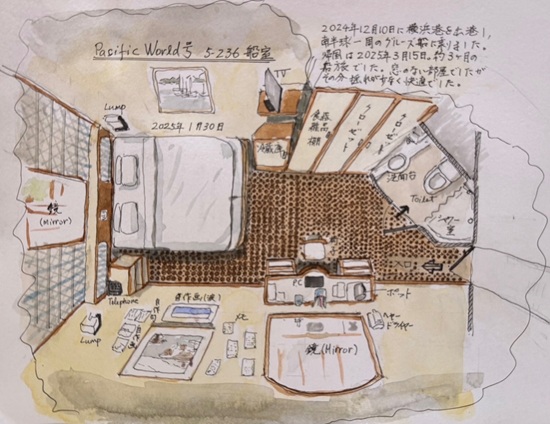 Pasific World号 5-236 船室
2024年12月10日に横浜港を出港し、
南半球一周のクルーズ船に乗りました。
帰国は2025年3月15日。約3ヶ月の
船旅でした。窓のない部屋でしたが
その分揺れが少なく快適でした。
TV
Lump
2025年1月30日
食器
棚
冷蔵庫
クローゼット
クローゼット
洗面台
Toilet
シャワー
室
鏡
(Mirror)
入口
PC
ポット
Telephone
自作画(涙)
メモ
Lump
鏡(Mirror)
ヘヤー
ドライヤー